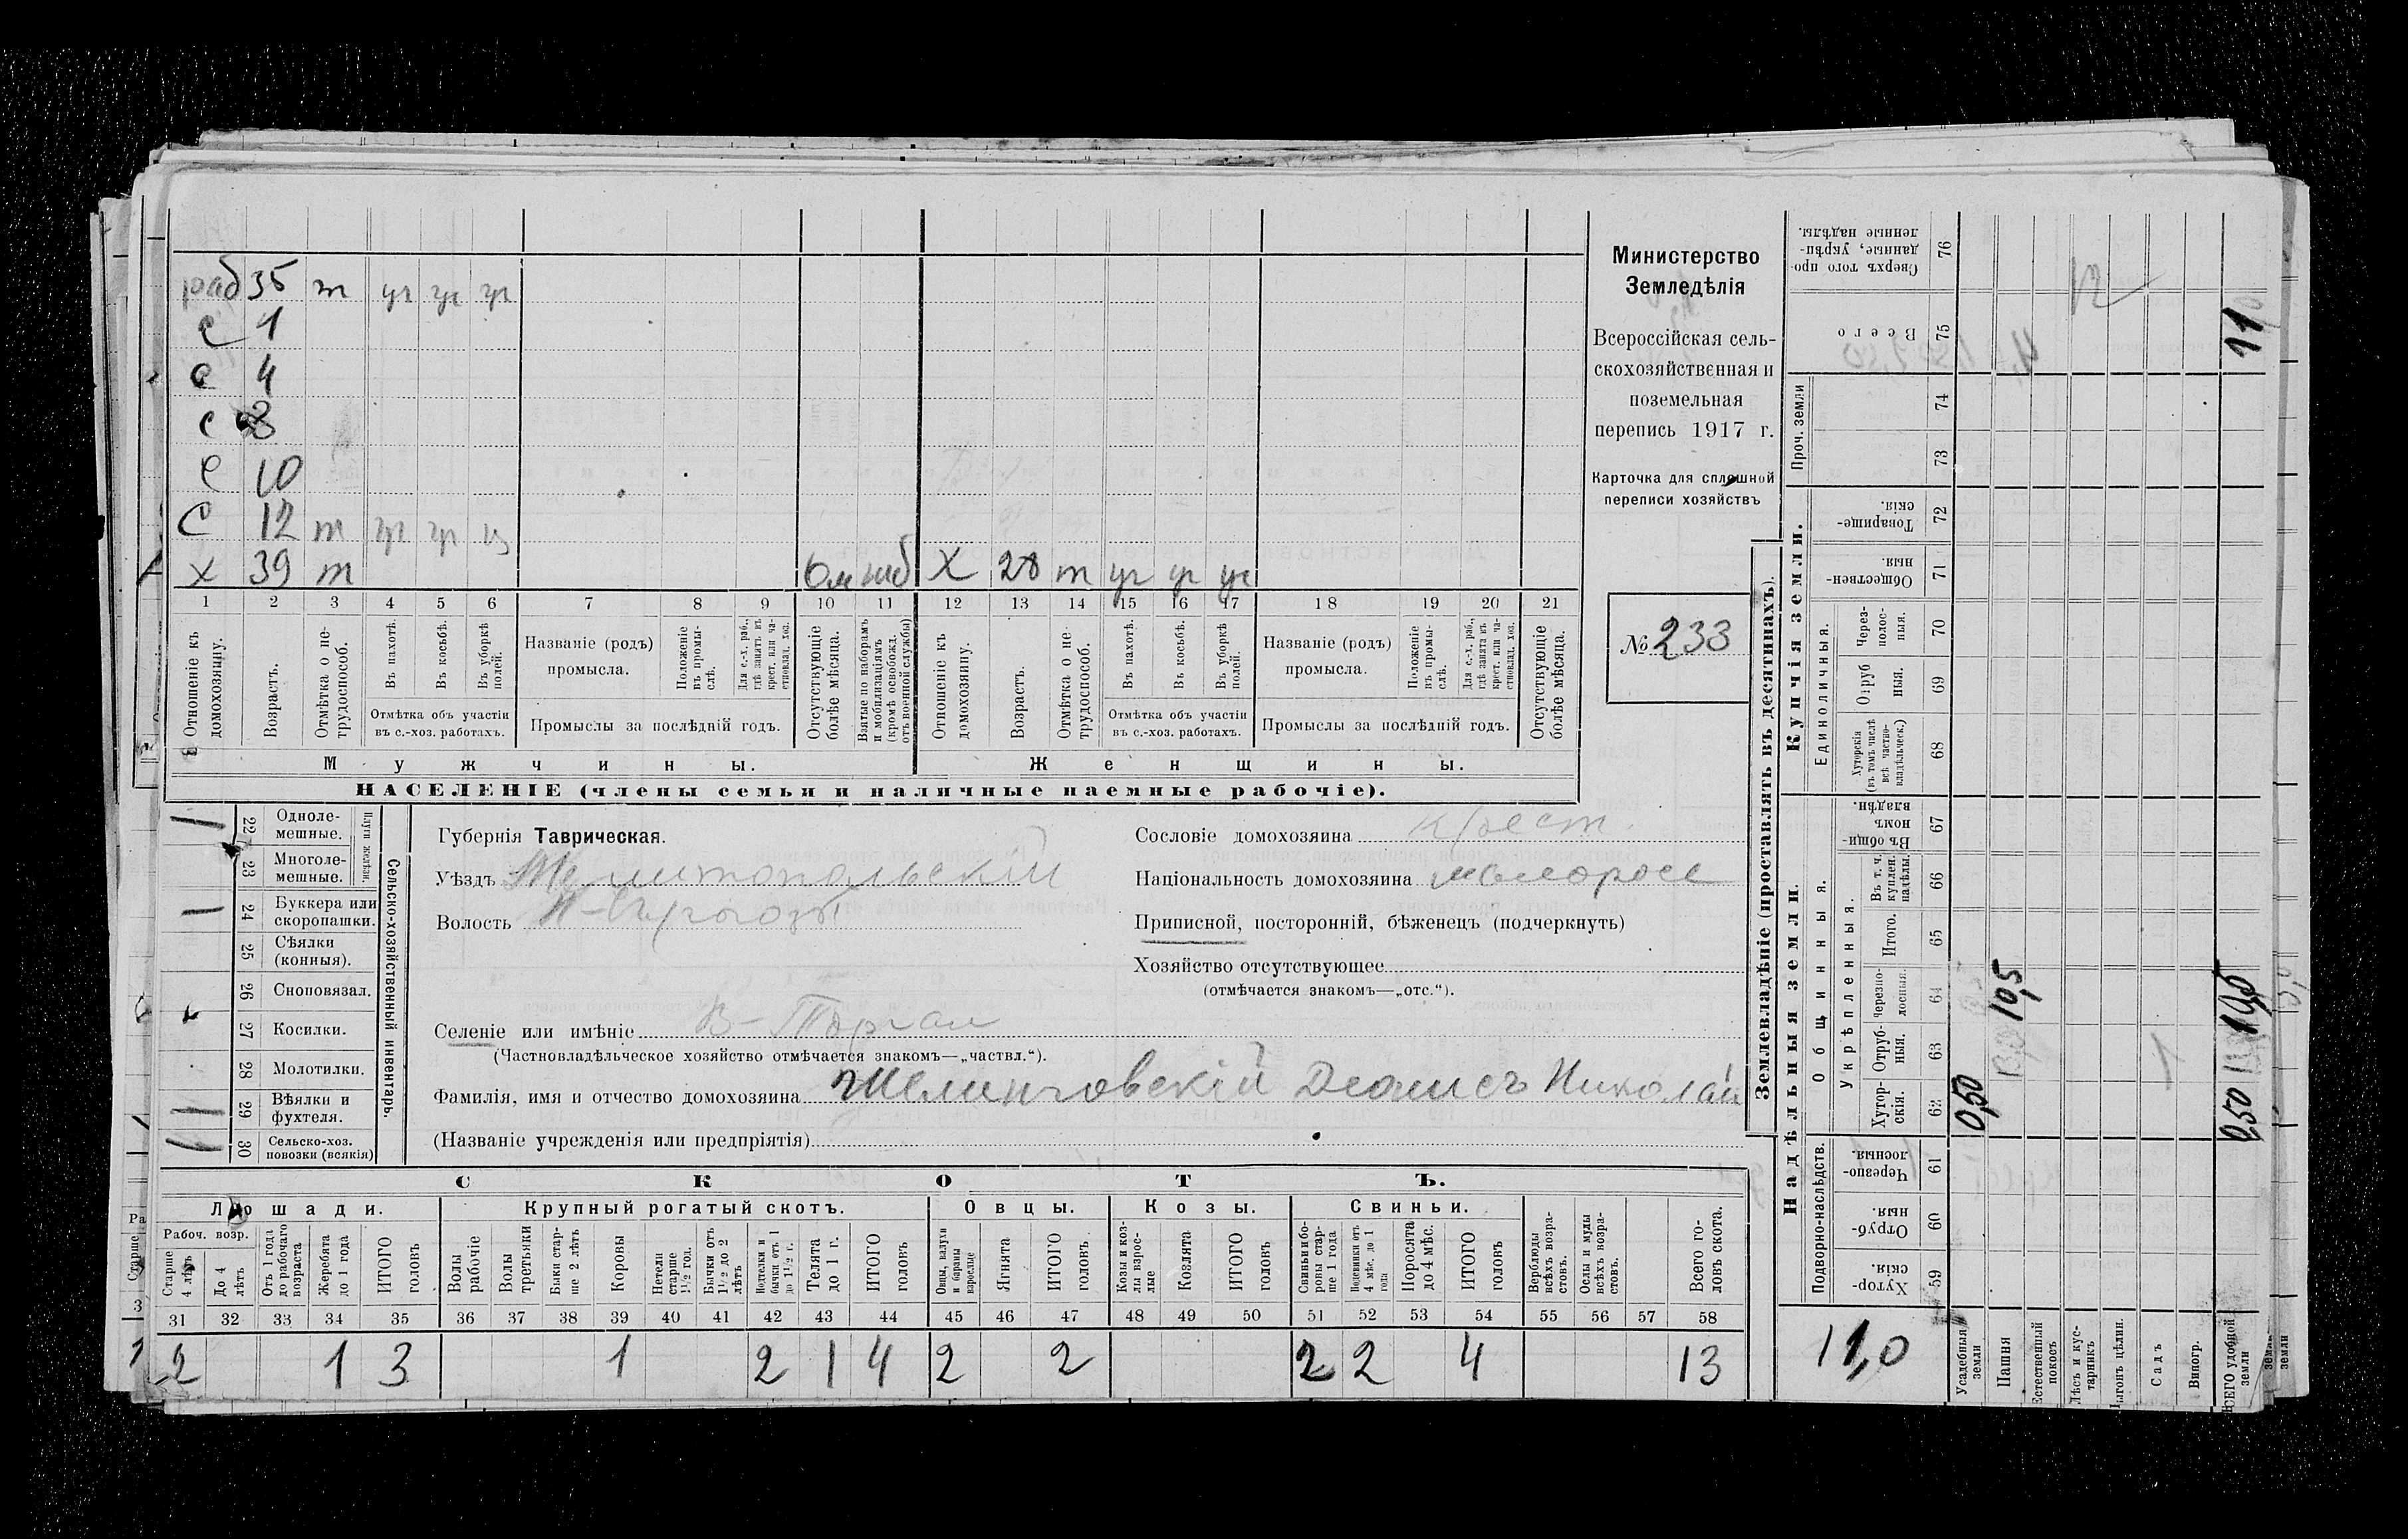 раб 35 т уч уч уч
с 1
с 4
с 8
с 10
С 12 т уч уч уч
х 39 т моб Х 28 т уч уч уч
1 2 3 4 5 6 7 8 9 10 11 12 13 14 15 16 17 18 19 20 21
Отношеніе къ домохозяину.
Возрастъ.
Отмѣтка о не-трудоспособ.
Въ пахотѣ.
Въ косьбѣ.
Въ уборкѣ полей.
Отмѣтка объ участіи
въ с.-хоз. работахъ.
Названіе (родъ)
промысла.
Положеніе въ промы-слѣ.
Для с.-х. раб., гдѣ занятъ въ крест. или ча-стновлад. хоз.
Промыслы за послѣдній годъ.
Отсутствующіе болѣе мѣсяца.
Взятые по наборамъ и мобилизаціямъ (кромѣ освобожд. отъ военной службы)
Отношеніе къ домохозяину.
Возрастъ.
Отмѣтка о не-трудоспособ.
Въ пахотѣ.
Въ косьбѣ.
Въ уборкѣ полей.
Отмѣтка объ участіи
въ с.-хоз. работахъ.
Названіе (родъ)
промысла.
Положеніе въ промы-слѣ.
Для с.-х. раб., гдѣ занятъ въ крест. или ча-стновлад. хоз.
Промыслы за послѣдній годъ.
Отсутствующіе болѣе мѣсяца.
Мужчины. Женщины.
НАСЕЛЕНІЕ (члены семьи и наличные наемные рабочіе).
Министерство
Земледѣлія
Всероссійская сель-
скохозяйственная и
поземельная
перепись 1917 г.
Карточка для сплошной
переписи хозяйствъ
№ 233
Сельско-хозяйственный инвентарь.
Плуги желѣзн.
22 Одноле-
мешные.
23 Многоле-
мешные.
24 Буккера или
скоропашки.
25 Сѣялки
(конныя).
26 Сноповязал.
27 Косилки.
28 Молотилки.
29 Вѣялки и
фухтеля.
30 Сельско-хоз.
повозки (всякія)
Губернія Таврическая.
Уѣздъ Мелитопольскій
Волость
Селеніе или имѣніе В-Торгаи
(Частновладѣльческое хозяйство отмѣчается знакомъ—„частвл.“).
Фамилія, имя и отчество домохозяина Денисъ Николай
(Названіе учрежденія или предпріятія)
Сословіе домохозяина крест.
Національность домохозяина малоросс
Приписной, посторонній, бѣженецъ (подчеркнуть)
Хозяйство отсутствующее
(отмѣчается знакомъ—„отс.“).
СКОТЪ.
Лошади. Крупный рогатый скотъ. Овцы. Козы. Свиньи.
Рабоч. возр.
Старше 4 лѣтъ
До 4 лѣтъ
Отъ 1 года до рабочаго возраста
Жеребята до 1 года
ИТОГО головъ
Волы рабочіе
Волы третьяки
Быки стар-ше 2 лѣтъ
Коровы
Нетели старше 1½ год.
Бычки отъ 1½ до 2 лѣтъ
Подтелки и бычки отъ 1 до 1½ г.
Телята до 1 г.
ИТОГО головъ
Овцы, валухи и бараны взрослые
Ягнята
ИТОГО головъ
Козы и коз-лы взрос-лые
Козлята
ИТОГО головъ
Свиньи и бо-ровы стар-ше 1 года
Подсвинки отъ 4 мѣс. до 1 года
Поросята до 4 мѣс.
ИТОГО головъ
Верблюды всѣхъ возра-стовъ.
Ослы и мулы всѣхъ возра-стовъ.
Всего го-ловъ скота.
31 32 33 34 35 36 37 38 39 40 41 42 43 44 45 46 47 48 49 50 51 52 53 54 55 56 57 58
2 1 3 1 2 1 4 2 2 2 2 4 13
Землевладѣніе (проставлять въ десятинахъ).
Надѣльныя земли. Купчія земли.
Подворно-наслѣдств.
Общинныя.
Укрѣпленныя.
Единоличныя.
Проч. земли
Хутор-скія. 59
Отруб-ныя 60
Черезпо-лосныя. 61
Хутор-скія. 62
Отруб-ныя. 63
Черезпо-лосныя. 64
Итого. 65
Въ т. ч. куплен. надѣлы. 66
Въ общин-номъ владѣн. 67
Хуторскія (въ томъ числѣ всѣ частно-владѣльческ.) 68
Отруб ныя. 69
Через-полос-ныя. 70
Обществен-ныя. 71
Товарище-скія. 72
73
74
Всего 75
Сверхъ того про-данные, укрѣп-ленные надѣлы. 76
11,0
Усадебныя земли 0,50
Пашня 10,5
Естественный покосъ
Лѣсъ и кус-тарникъ
Выгонъ цѣлин.
Садъ
Виногр.
ВСЕГО удобной земли 11